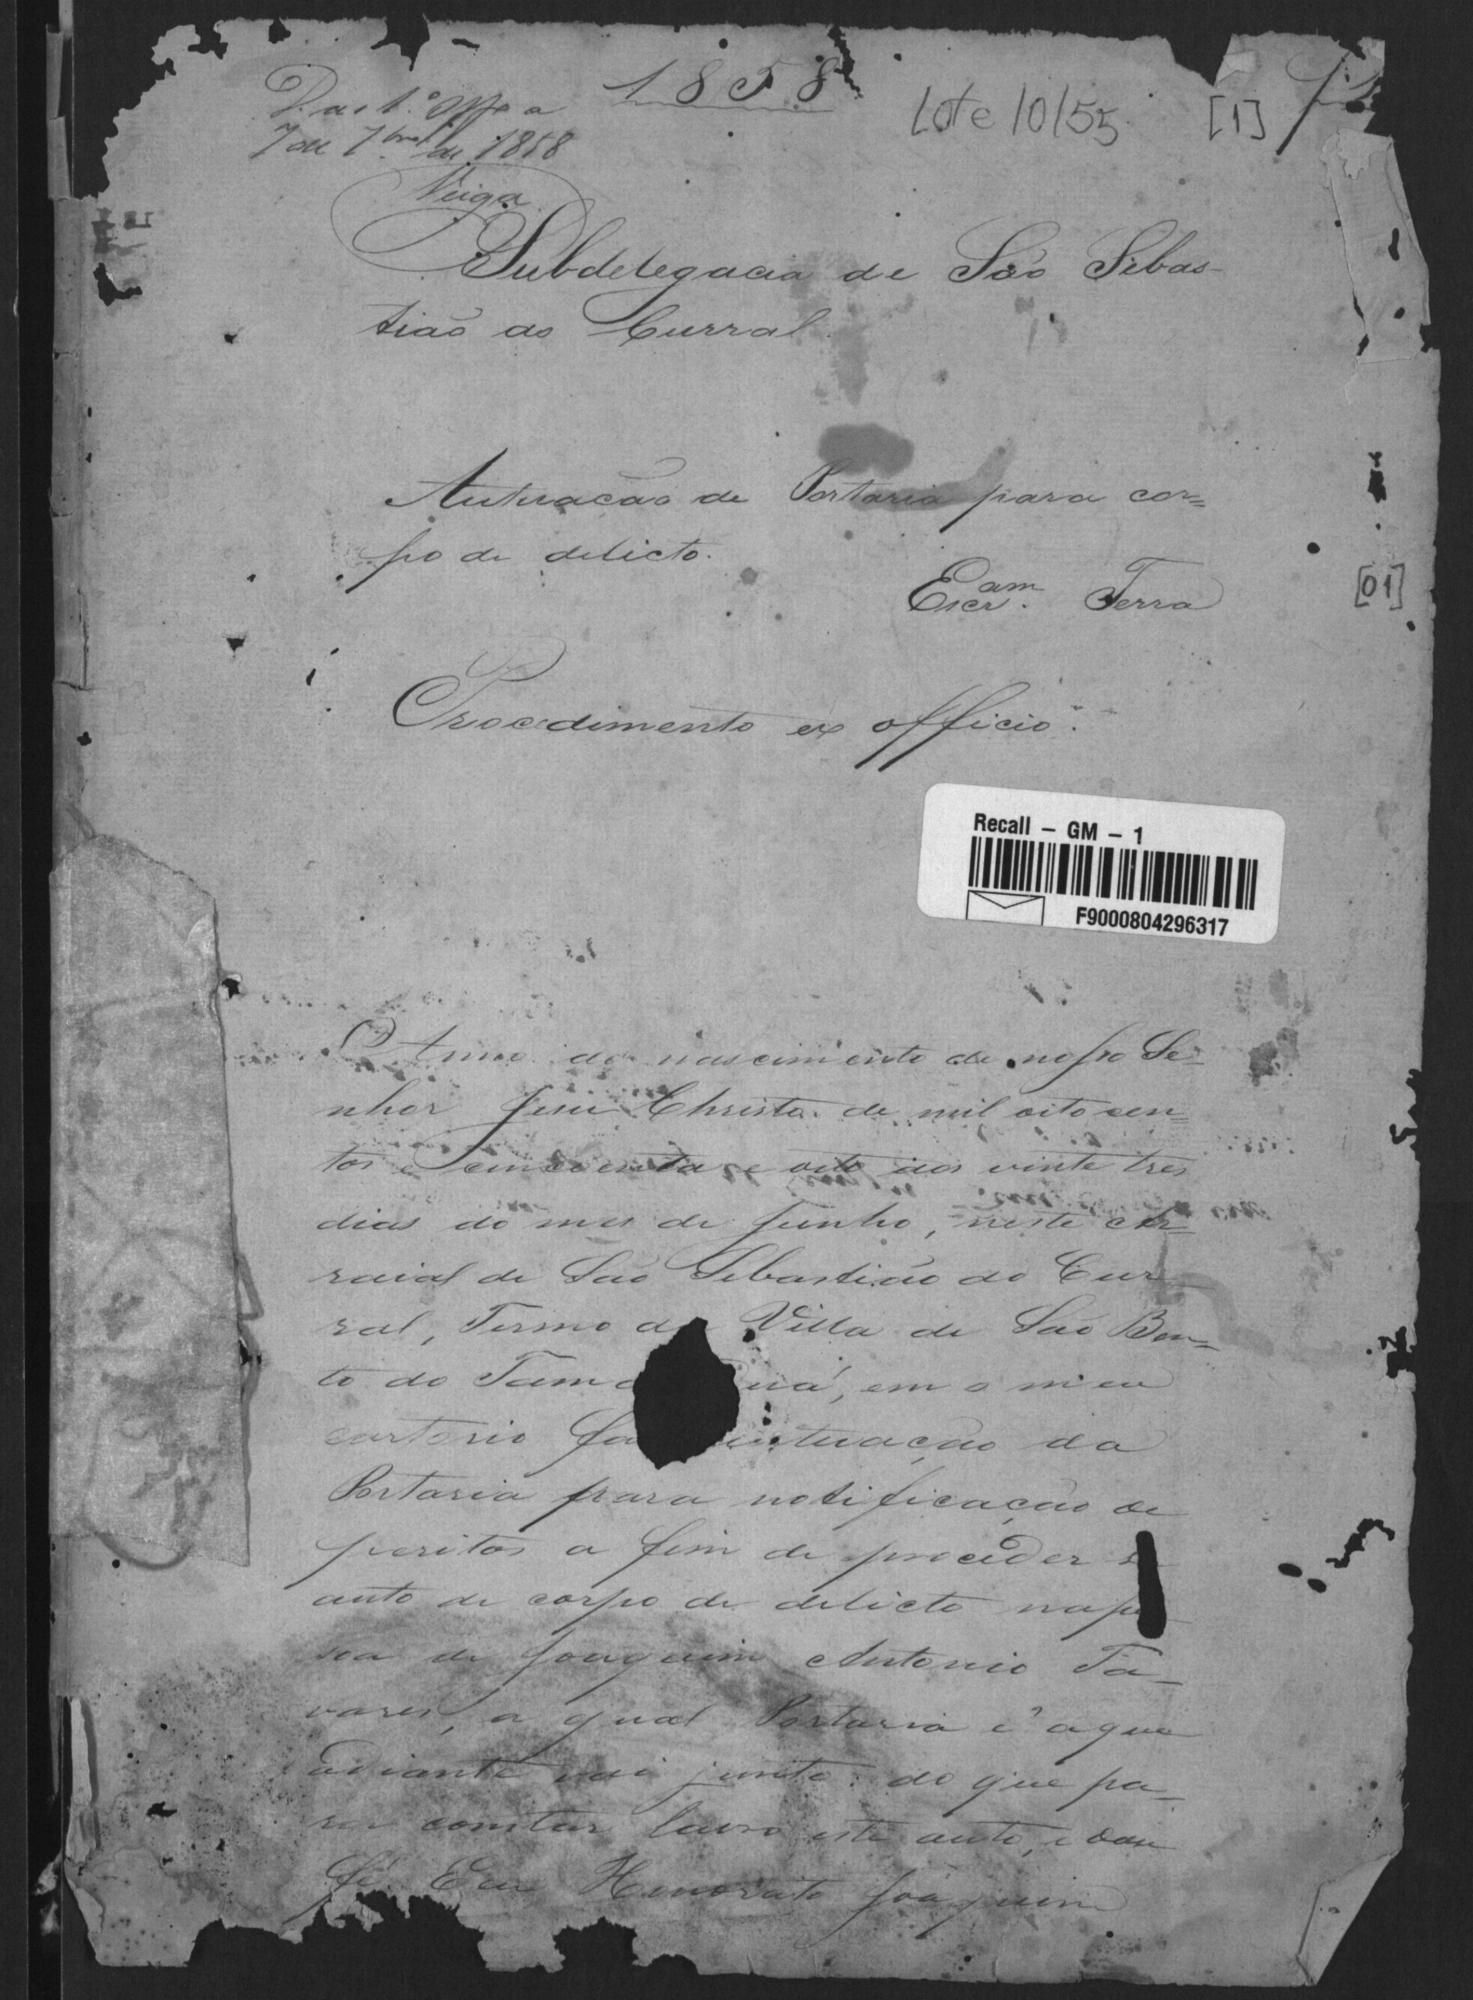 1858
Lote 10/55 [1]
7 de 7bro de 1858
Veiga
Subdelegacia de São Sebas-
tião do Curral.
Autuacão de Portaria para cor=
po de delicto.
Escram. Terra
[01]
Procedimento ex officio.
Recall – GM – 1
F9000804296317
Anno do nascimento de nosso Se-
nhor Jesu Christo de mil oitocen-
tos e cincoenta e oito aos vinte tres
dias do mes de Junho, neste Ar-
raial de São Sebastião do Cur-
ral, Termo da Villa de São Ben-
to do Tama uá, em o meu
cartorio fa autuação da
Portaria para notificação de
peritos a fim de proceder se
auto de corpo de delicto na pe
soa de Joaquim Antonio Ta-
vares, a qual Portaria é a que
adiante vai junto: do que pa-
ra constar lavro este auto, e dou
fé. Eu Honorato Joaquim